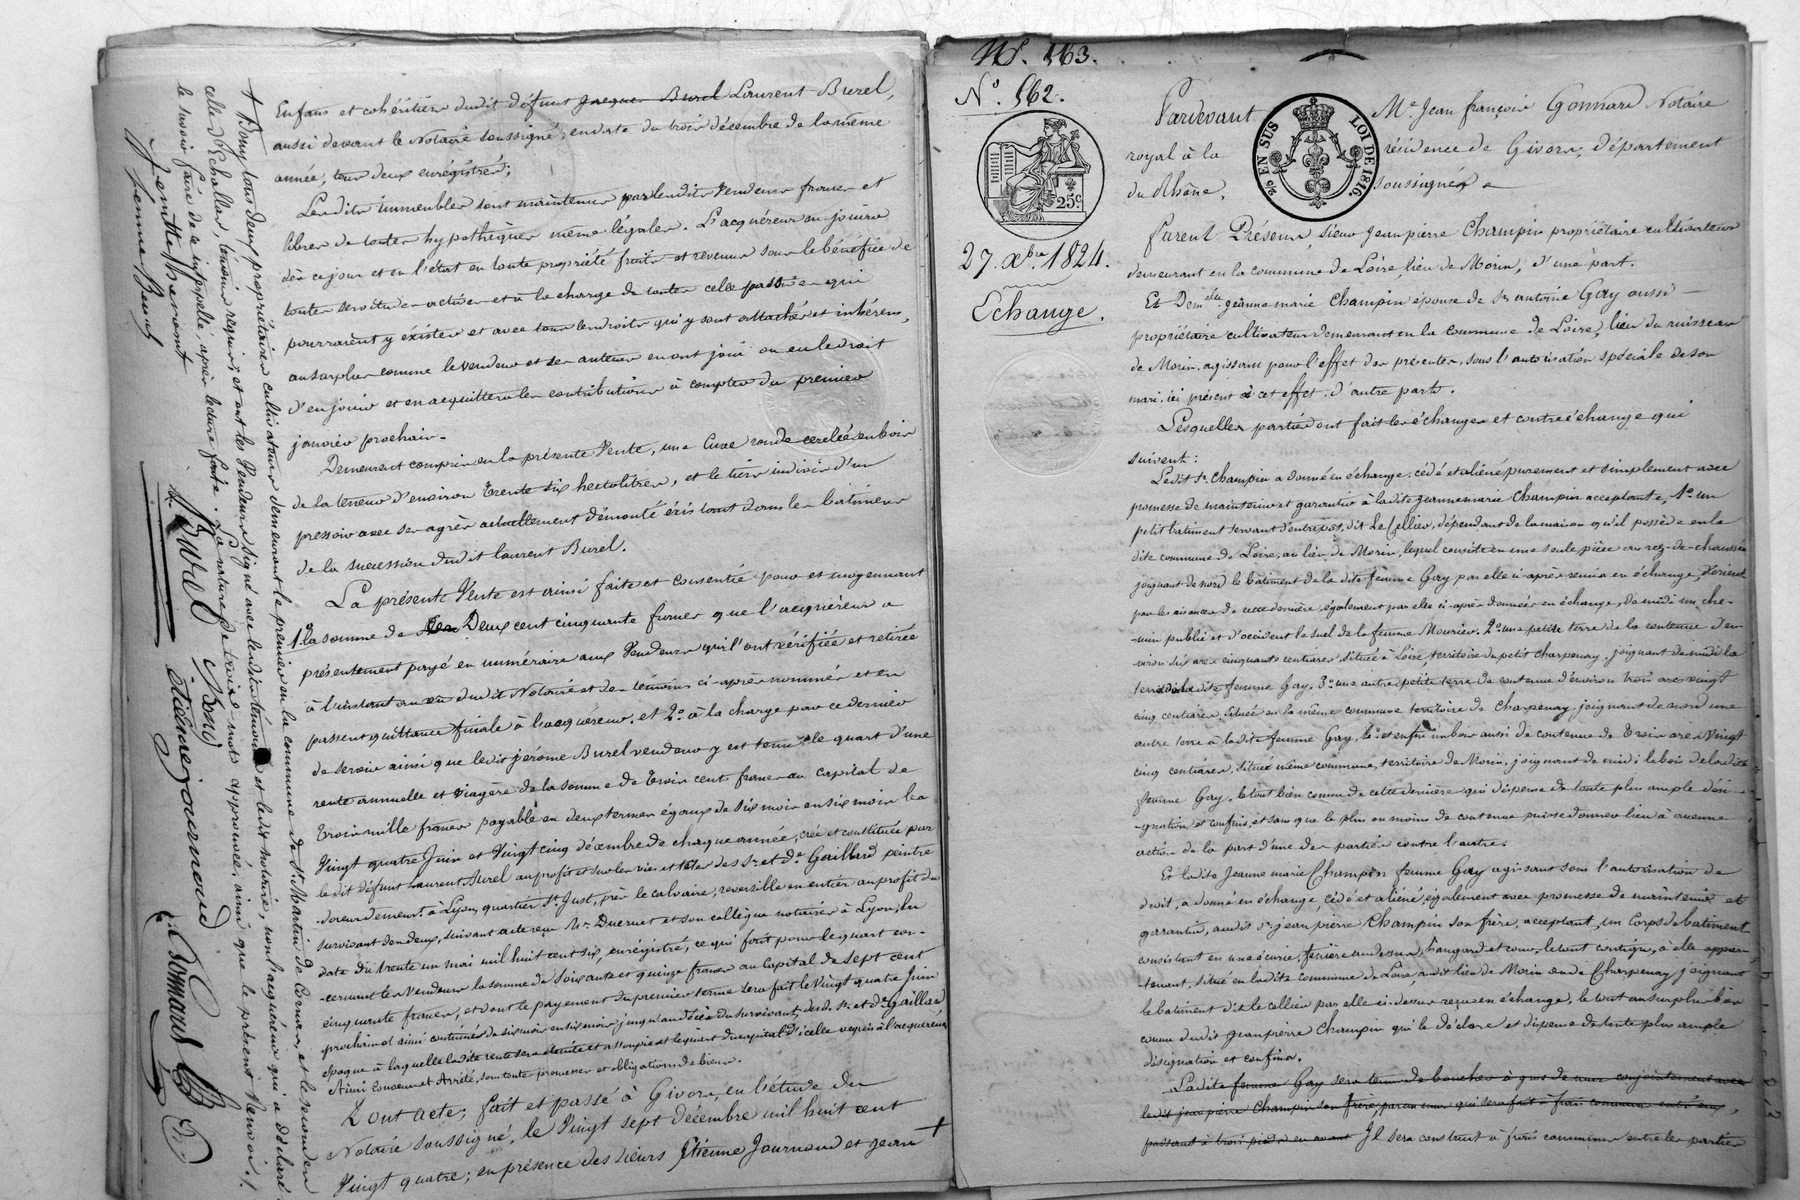 Enfans et cohéritiers dudit défunt Jacques Burel Laurent Burel,
aussi devant le Notaire soussigné, en date du trois décembre de la même
année, tous deux enrégistrés;
Lesdits immeubles sont maintenus par lesdits Vendeurs francs et
libres de toutes hypothèques même légales. L'acquéreur en jouira
dès ce jour et en l'état en toute propriété fruits et revenus sous le bénéfice de
toutes servitudes actives et à la charge de toutes celles passives qui
pourraient y éxister et avec tous les droits qu'y sont attachés et inhérens,
au surplus comme le vendeur et ses auteurs en ont joui ou eu le droit
d'en jouir et en acquittera les contributions à compter du premier
janvier prochain.
Demeurent compris en la présente Vente, une Cuve ronde cerclée en bois
de la teneur d'environ trente six hectolitres, et le tiers indivis d'un
pressoir avec ses agrès actuellement démonté éxistant dans les bâtimens
de la succession dudit Laurent Burel.
La présente Vente est ainsi faite et consentie pour et moyennant
1º la somme de Deux cent cinquante francs que l'acquéreur a
présentement payé en numéraire aux Vendeurs qui l'ont vérifiée et retirée
à l'instant au vu dudit Notaire et des témoins ci-après nommés et en
passent quittance finale à l'acquéreur. et 2º à la charge par ce dernier
de servir ainsi que ledit jérôme Burel vendeur y est tenu le quart d'une
rente annuelle et viagère de la somme de trois cent francs au capital de
trois mille francs payable en deux termes égaux de six mois en six mois les
Vingt quatre Juin et Vingt cinq décembre de chaque année, crée et constituée par
le dit défunt Laurent Burel au profit et sur les vies et têtes des Sr. et De. Gaillard peintre
doreur demeurt. à Lyon, quartier St. Just, près le calvaire, reversible en entier au profit du
survivant des deux, suivant acte reçu Me. Ducruet et son collègue notaires à Lyon, en
date du trente un mai mil huit cent six, enrégistré, ce qui fait pour le quart con-
-cernant les Vendeurs la somme de soixante et quinze francs au Capital de sept cent
cinquante francs, et dont le payement du premier terme sera fait le Vingt quatre Juin
prochain et ainsi continuer de six mois en six mois jusqu'au décès du survivant desd. Sr. et De. Gaillard
époque à laquelle ladite rente sera éteinte et assoupie et le quart du capital d'icelle acquis à l'acquéreur
Ainsi Convenu et Arrêté, sous toutes promesses et obligations de biens.
Dont acte; fait et passé à Givors, en l'étude du
Notaire soussigné, le Vingt sept décembre mil huit cent
Vingt quatre; en présence des sieurs Etienne Journoud et jean +
+ Bony tous deux propriétaires cultivateurs demeurant le premier en la commune de St. Martin de Cornas, et le second en
celle d'Echallas, témoins requis; et ont les Vendeurs signé avec lesdits témoins et ledit notaire, non l'acquéreur qui a déclaré
le savoir faire de ce interpellé, après lecture faite. La rature de trois mots approuvée, ainsi que le présent Renvoi./.
femme Burel
Burel Bony
étienne journoud
Gonnard
Nº. 563.
Nº. 562.
25c
27. Xbre. 1824.
Echange.
EN SUS LOI DE 1816.
Pardevant Me. Jean françois Gonnard Notaire
royal à la résidence de Givors, département
du Rhône, soussigné
furent Présens, sieur Jean pierre Champin propriétaire cultivateur
demeurant en la commune de Loire lieu de Morin, d'une part.
Et Demelle Jeanne marie Champin épouse de Sr. antoine Gay aussi
propriétaire cultivateur demeurant en la Commune de Loire, lieu du ruisseau
de Morin, agissant pour l'effet des présentes, sous l'autorisation spéciale de son
mari, ici présent à cet effet, d'autre part.
Lesquelles parties ont fait les échanges et contre échange qui
suivent:
Ledit Sr. Champin a donné en échange, cédé et aliéné purement et simplement avec
promesse de maintenir et garantir à ladite Jeanne marie Champin acceptante, 1º un
petit batiment servant d'entrepôt, dit le Cellier, dépendant de la maison qu'il possède en la
dite commune de Loire, au lieu de Morin, lequel consiste en une seule pièce au rez-de-chaussée
joignant de nord le bâtiment de la dite femme Gay par elle ci-après remis en échange, d'orient
par les aisances de cette dernière également par elle ci-après données en échange, de midi un che-
-min public et d'occident le suel de la femme Meurier. 2º une petite terre de la contenue d'en
viron six ares cinquante centiares située à Loire, territoire du petit charpenay, joignant de midi la
terre de ladite femme Gay. 3º une autre petite terre de contenue d'environ trois ares vingt
cinq centiares, située en la même commune territoire de Charpenay, joignant de nord une
autre terre à ladite femme Gay. 4º et enfin un bois aussi de contenue de trois ares Vingt
cinq centiares, situé même commune, territoire de Morin, joignant de midi le bois de ladite
femme Gay. le tout bien connu de cette dernière qui dispense de toute plus ample dési-
-gnation et confins, et sans que le plus ou moins de contenue puisse donner lieu à aucune
action de la part d'une des parties contre l'autre.
Et ladite Jeanne marie Champin femme Gay agissant sous l'autorisation de
droit, a donné en échange cédé et aliéné, également avec promesse de maintenir et
garantir, audit Sr. jean pierre Champin son frère, acceptant, un Corps de batiment
consistant en une écurie, fenière au dessus, hangard et cour, le tout contigu, à elle appar-
tenant, situé en ladite commune de Loire, audit lieu de Morin ou de Charpenay, joignant
le batiment dit le cellier par elle ci-dessus reçu en échange, le tout au surplus bien
connu dudit jean pierre Champin qui le déclare et dispense de toute plus ample
désignation et confins.
La dite femme Gay sera tenue de boucher à gros de mur conjointement avec
ledit jean pierre Champin son frère, par un mur qui sera fait à frais communs entre eux,
passant à trois pieds en avant Il sera construit à frais communs entre les parties